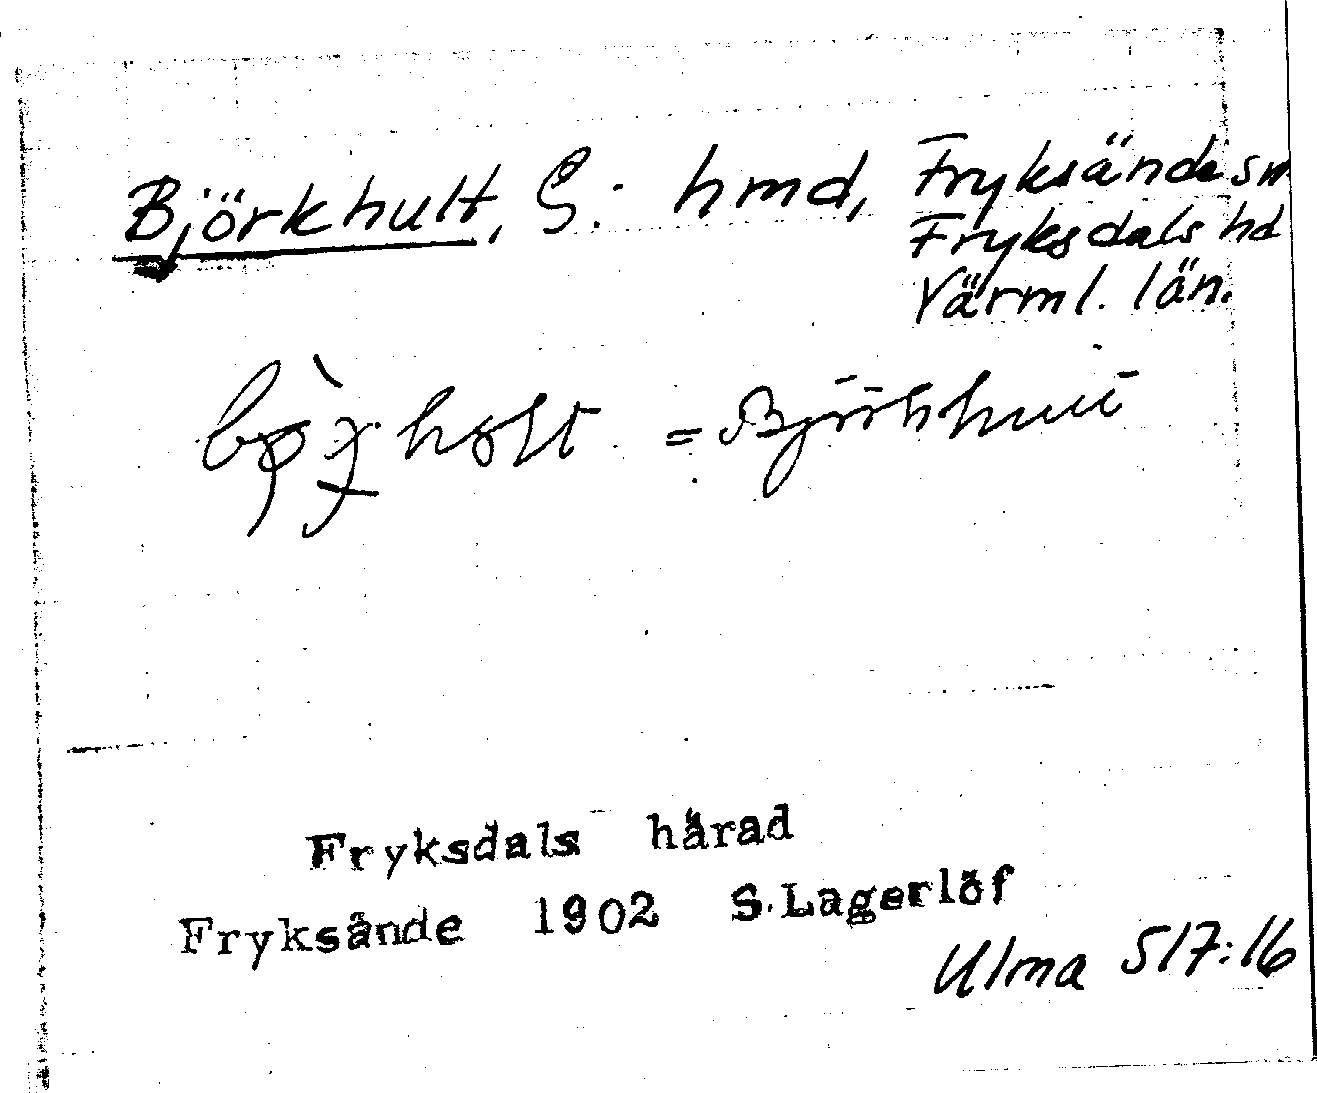 Björkhult, S: hmd, Fryksände sn
Fryksdals hd
Värml. län.
= Björkhult
Fryksdals härad
Fryksände 1902 S. Lagerlöf
Ulma 517:16